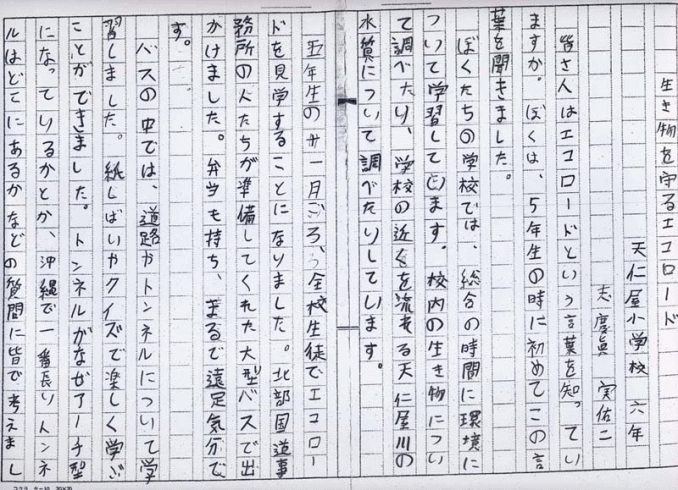 生き物を守るエコロード
天仁屋小学校 六年
志慶眞 実佑二
皆さんはエコロードという言葉を知ってい
ますか。ぼくは、5年生の時に初めてこの言
葉を聞きました。
ぼくたちの学校では、総合の時間に環境に
ついて学習しています。校内の生き物につい
て調べたり、学校の近くを流れる天仁屋川の
水質について調べたりしています。
五年生の十一月ごろ、全校生徒でエコロー
ドを見学することになりました。北部国道事
務所の人たちが準備してくれた大型バスで出
かけました。弁当も持ち、まるで遠足気分で
す。
バスの中では、道路やトンネルについて学
習しました。紙しばいやクイズで楽しく学ぶ
ことができました。トンネルがなぜアーチ型
になっているかとか、沖縄で一番長いトンネ
ルはどこにあるかなどの質問に皆で考えまし